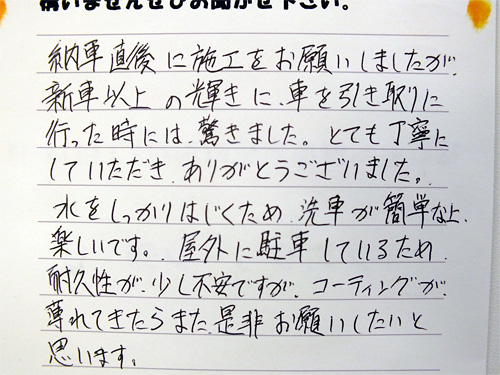 構いませんぜひお聞かせ下さい。
納車直後に施工をお願いしましたが、
新車以上の輝きに、車を引き取りに
行った時には、驚きました。とても丁寧に
していただき、ありがとうございました。
水をしっかりはじくため、洗車が簡単な上、
楽しいです。屋外に駐車しているため、
耐久性が、少し不安ですが、コーティングが、
薄れてきたらまた、是非お願いしたいと
思います。